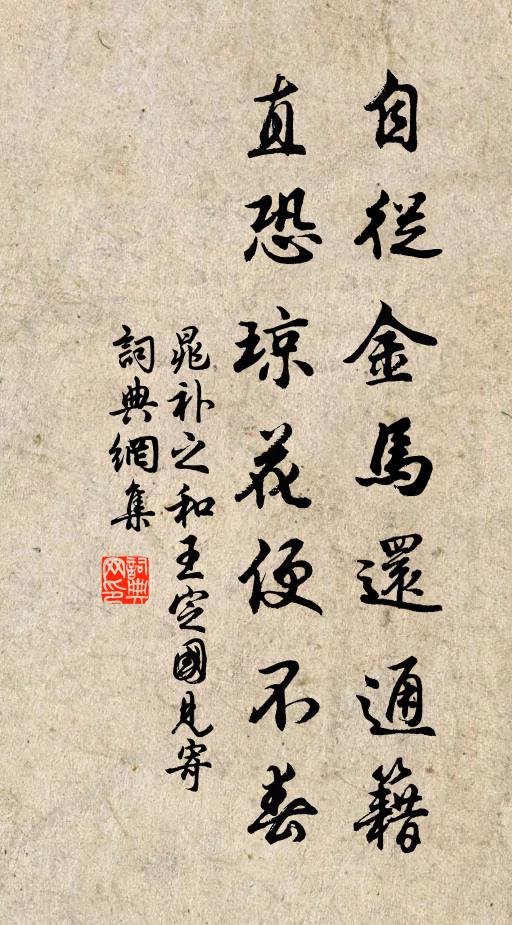 自從金馬還通籍
直恐琼花便不春
晁补之和王定國見寄
詞典網集
詞典网印